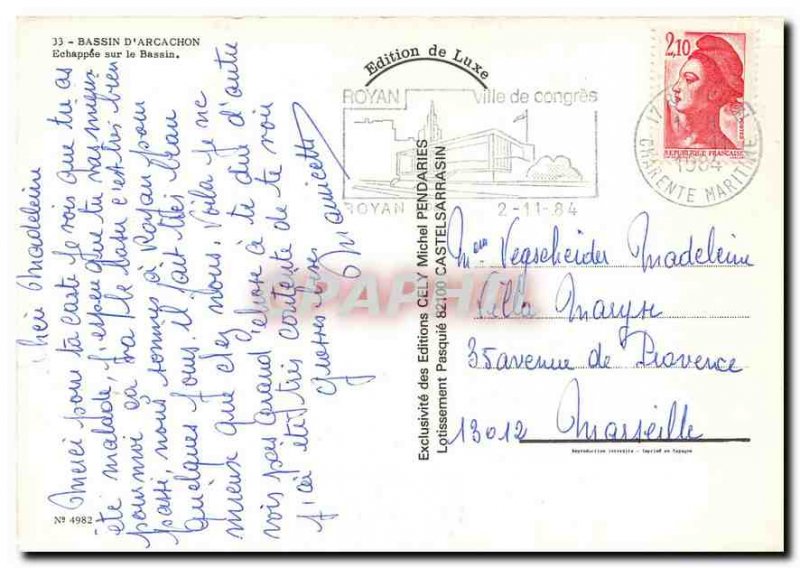 33 - BASSIN D'ARCACHON
Echappée sur le Bassin.
Chère Madeleine
Merci pour ta carte Je vois que tu as
été malade, j'espère que tu vas mieux
pour moi ça va le bassin c'est très bien
passé, nous sommes à Royan pour
quelques jours. il fait très beau
mieux que chez nous. Voila je ne
vois pas grand chose à te dire d'autre
j'ai été très contente de te voir
Grosses bises
Mauricette
Nº 4982
Edition de Luxe
ROYAN ville de congrès
ROYAN 2-11-84
2,10
REPUBLIQUE FRANÇAISE
17
1984
CHARENTE MARITIME
Exclusivité des Editions CELY Michel PENDARIES
Lotissement Pasquié 82100 CASTELSARRASIN
CPAPHIL
Mme Vegscheider Madeleine
Villa Maryse
35 avenue de Provence
13012 Marseille
Reproduction interdite - Imprimé en Espagne